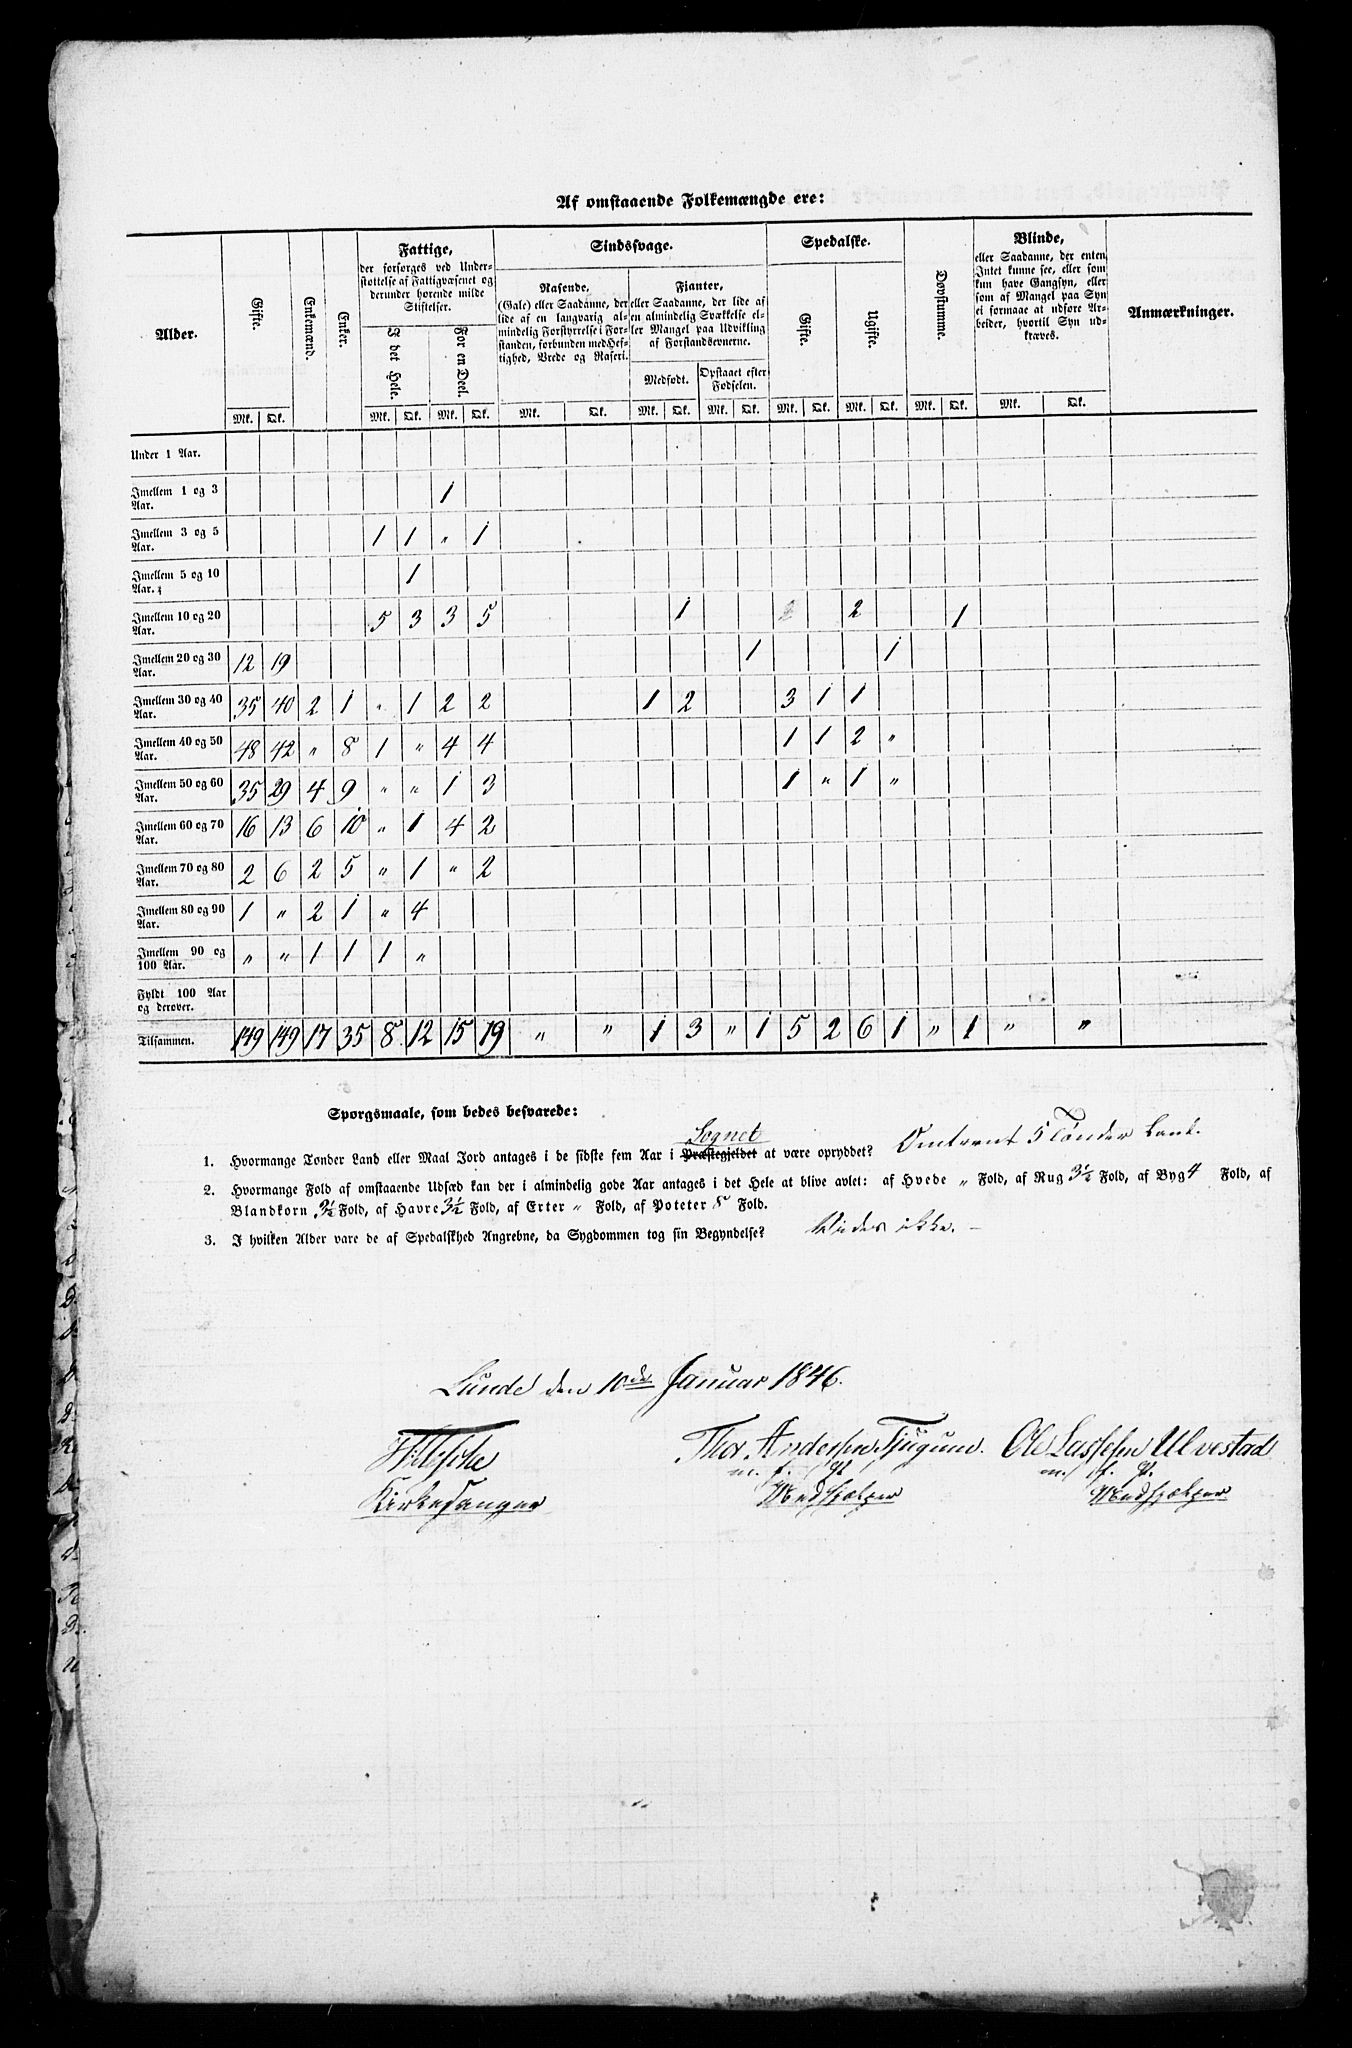 Af omstaaende Folkemængde ere:
Alder. | Gifte. | Enkemænd. | Enker. | Fattige, der forsørges ved Understøttelse af Fattigvæsenet og derunder hørende milde Stiftelser. | Sindssvage. | Spedalske. | Døvstumme. | Blinde, eller Saadanne, der enten Intet kunne see, eller som kun have Gangsyn, eller som af Mangel paa Syn ei formaae at udføre Arbeider, hvortil Syn udkræves. | Anmærkninger.
I det Hele. | For en Deel. | Rasende, (Gale) eller Saadanne, der lide af en langvarig almindelig Forstyrrelse i Forstanden, forbunden med Heftighed, Vrede og Raseri. | Fianter, eller Saadanne, der lide af en almindelig Svækkelse eller Mangel paa Udvikling af Forstandsevnerne. | Gifte. | Ugifte.
Medfødt. | Opstaaet efter Fødselen.
Mk. | Qk. | Mk. | Qk. | Mk. | Qk. | Mk. | Qk. | Mk. | Qk. | Mk. | Qk. | Mk. | Qk. | Mk. | Qk. | Mk. | Qk. | Mk. | Qk.
Under 1 Aar.
Imellem 1 og 3 Aar. | 1
Imellem 3 og 5 Aar. | 1 | 1 | " | 1
Imellem 5 og 10 Aar. | 1
Imellem 10 og 20 Aar. | 5 | 3 | 3 | 5 | 1 | 2 | 1
Imellem 20 og 30 Aar. | 12 | 19 | 1 | 1
Imellem 30 og 40 Aar. | 35 | 40 | 2 | 1 | " | 1 | 2 | 2 | 1 | 2 | 3 | 1 | 1
Imellem 40 og 50 Aar. | 48 | 42 | " | 8 | 1 | " | 4 | 4 | 1 | 1 | 2 | "
Imellem 50 og 60 Aar. | 35 | 29 | 4 | 9 | " | " | 1 | 3 | 1 | " | 1 | "
Imellem 60 og 70 Aar. | 16 | 13 | 6 | 10 | " | 1 | 4 | 2
Imellem 70 og 80 Aar. | 2 | 6 | 2 | 5 | " | 1 | " | 2
Imellem 80 og 90 Aar. | 1 | " | 2 | 1 | " | 4
Imellem 90 og 100 Aar. | " | " | 1 | 1 | 1 | "
Fyldt 100 Aar og derover.
Tilsammen. | 149 | 149 | 17 | 35 | 8 | 12 | 15 | 19 | " | " | 1 | 3 | " | 1 | 5 | 2 | 6 | 1 | " | 1 | " | "
Spørgsmaale, som bedes besvarede:
Sognet
1. Hvormange Tønder Land eller Maal Jord antages i de sidste fem Aar i Præstegjeldet at være opryddet? Omtrent 5 Tønder Land.
2. Hvormange Fold af omstaaende Udsæd kan der i almindelig gode Aar antages i det Hele at blive avlet: af Hvede " Fold, af Rug 3½ Fold, af Byg 4 Fold, af
Blandkorn 3½ Fold, af Havre 3½ Fold, af Erter " Fold, af Poteter 8 Fold.
3. I hvilken Alder vare de af Spedalskhed Angrebne, da Sygdommen tog sin Begyndelse? Vides ikke. –
Lunde den 10de Januar 1846.
Thor Andersen Tjugum. Ole Lassesen Ulvestad
m. f. P. m. f. P.
Kirkesanger Medhjælper Medhjælper